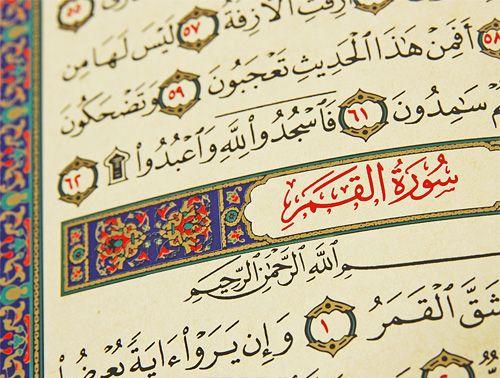 ٥٥ أَزِفَتِ ٱلْأَزِفَةُ ٥٧
أَفَمِنْ هَٰذَا ٱلْحَدِيثِ تَعْجَبُونَ ٥٩ وَتَضْحَكُونَ
سَٰمِدُونَ ٦١ فَٱسْجُدُوا۟ لِلَّهِ وَٱعْبُدُوا۟ ۩ ٦٢
سُورَةُ ٱلْقَمَرِ
ٱللَّهِ ٱلرَّحْمَٰنِ ٱلرَّحِيمِ
ٱلْقَمَرُ ١ وَإِن يَرَوْا۟ ءَايَةً يُعْرِضُوا۟